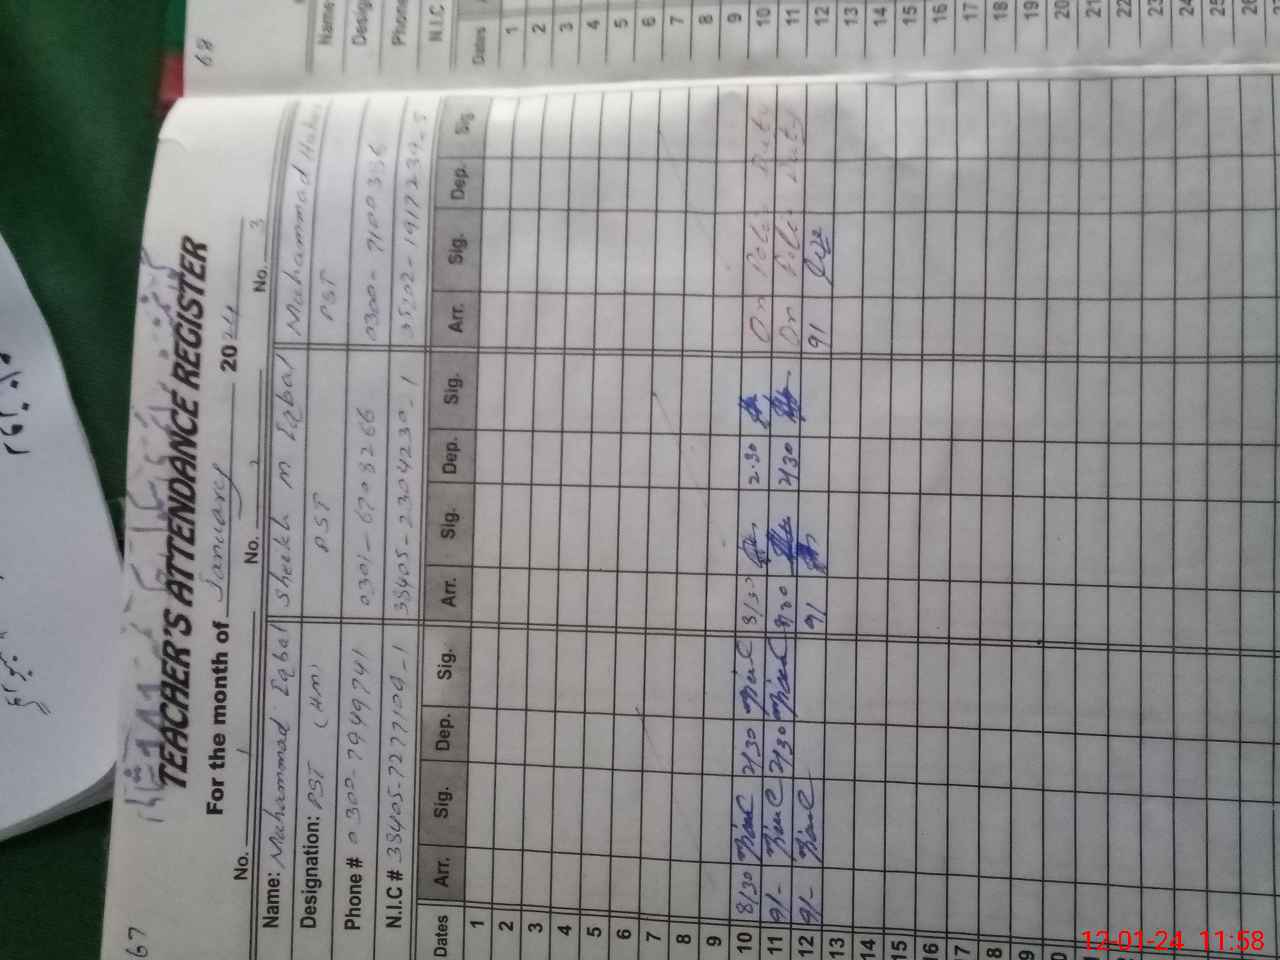 67
TEACHER'S ATTENDANCE REGISTER
For the month of January 2024
No. 1 No. 2 No. 3
Name: Muhammad Iqbal Sheikh M Iqbal Muhammad
Designation: PST (HM) PST PST
Phone # 0300-7949741 0301-6703266 0300-7100336
N.I.C # 38405-7277109-1 38405-2304230-1 35202-1917239-5
Dates Arr. Sig. Dep. Sig. Arr. Sig. Dep. Sig. Arr. Sig. Dep. Sig.
1
2
3
4
5
6
7
8
9
10 8/30 2/30 8/30 2.30 On Polio Duty
11 9/- 2/30 8/30 2/30 On Polio Duty
12 9/- 9/ 9/
13
14
15
16
17
18
19
20
21
22
23
24
25
26
68
Name
Desig
Phone
N.I.C
Dates
1
2
3
4
5
6
7
8
9
10
11
12
13
14
15
16
17
18
19
20
21
22
23
24
25
26
12-01-24 11:58